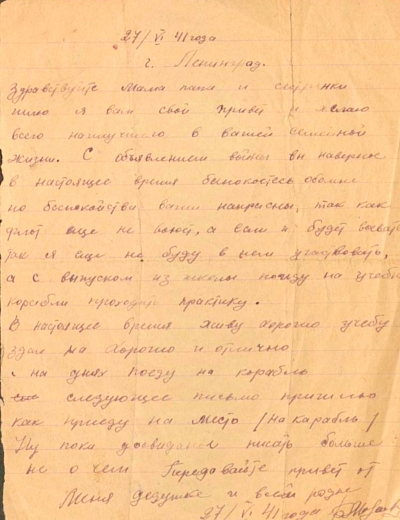 27/VI 41 года
г. Ленинград.
Здравствуйте мама папа и сестренки
шлю я вам свой привет и желаю
всего наилучшего в вашей семейной
жизни. С объявлением войны вы наверное
в настоящее время беспокоитесь обо мне
но беспокойства ваши напрасны, так как
флот еще не воюет, а если и будет воевать
так я еще не буду в нем участвовать,
а с выпуском из школы поеду на учебн
корабли проходить практику.
В настоящее время я живу хорошо учебу
сдал на хорошо и отлично
на днях поеду на корабль
следующее письмо пришлю
как приеду на место /на карабль/
Ну пока досвидание писать больше
не о чем Передавайте привет от
меня дедушке и всем родн
27/VI 41 года